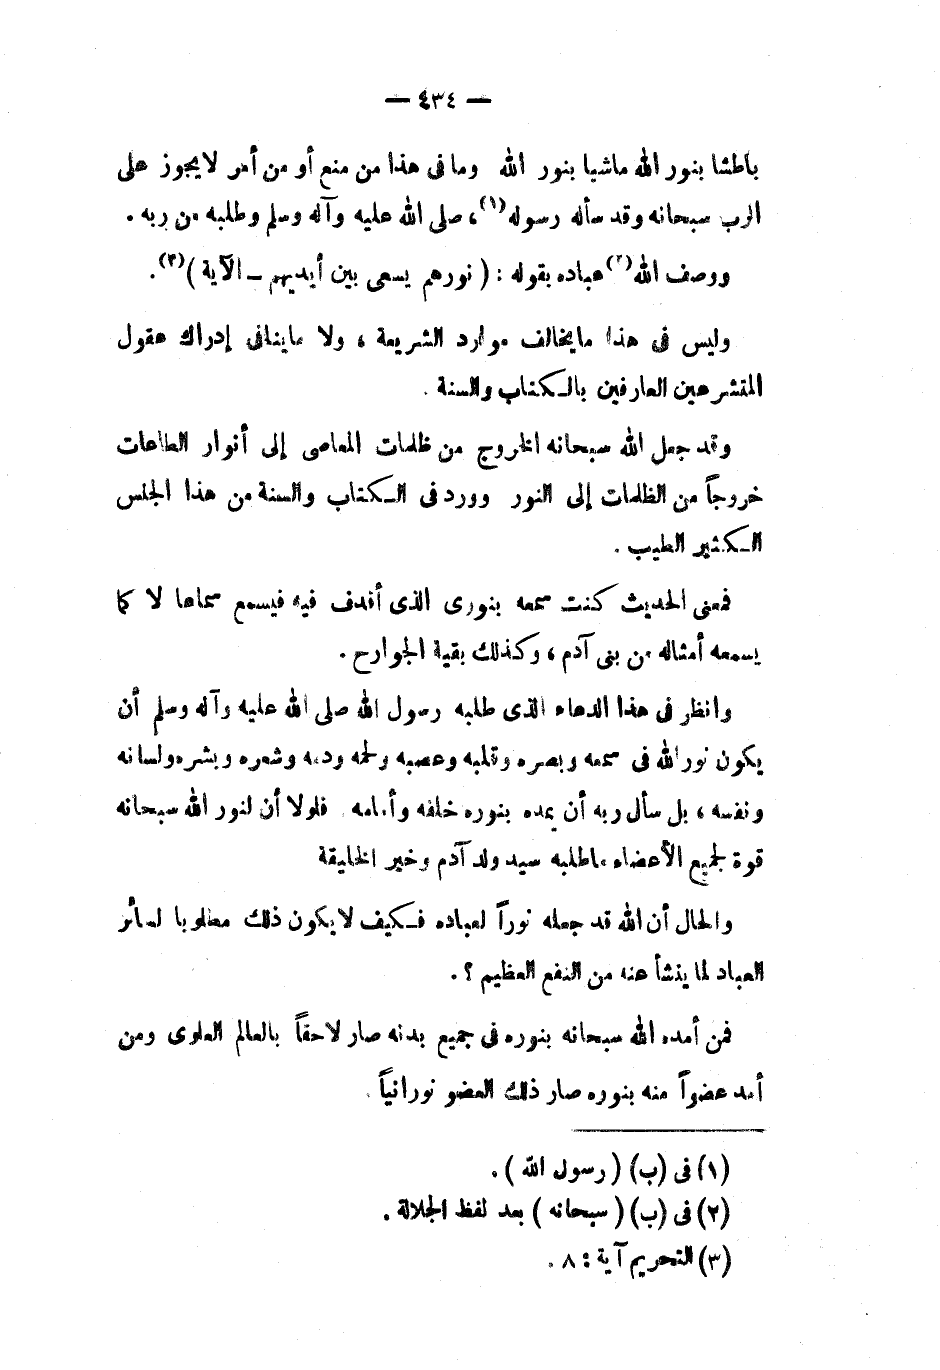 — ٤٣٤ —
باطشا بنور الله ماشيا بنور الله وما فى هذا من منع أو من أمر لا يجوز على
الرب سبحانه وقد سأله رسوله(١)، صلى الله عليه وآله وسلم وطلبه من ربه .
ووصف الله(٢) عباده بقوله : ( نورهم يسعى بين أيديهم ــ الآية )(٣).
وليس فى هذا ما يخالف موارد الشريعة ، ولا ما ينافى إدراك عقول
المتشرعين العارفين بالكتاب والسنة .
وقد جعل الله سبحانه الخروج من ظلمات المعاصى إلى أنوار الطاعات
خروجاً من الظلمات إلى النور وورد فى الكتاب والسنة من هذا الجنس
الكثير الطيب .
فمعنى الحديث كنت سمعه بنورى الذى أقذف فيه فيسمع سماعا لا كما
يسمعه أمثاله من بنى آدم ، وكذلك بقية الجوارح .
وانظر فى هذا الدعاء الذى طلبه رسول الله صلى الله عليه وآله وسلم أن
يكون نور الله فى سمعه وبصره وقلبه وعصبه ولحمه ودمه وشعره وبشره ولسانه
ونفسه ، بل سأل ربه أن يمده بنوره خلفه وأمامه . فلولا أن لنور الله سبحانه
قوة لجميع الأعضاء ماطلبه سيد ولد آدم وخير الخليقة
والحال أن الله قد جعله نوراً لعباده فكيف لا يكون ذلك مطلوبا لسائر
العباد لما ينشأ عنه من النفع العظيم ؟ .
فمن أمده الله سبحانه بنوره فى جميع بدنه صار لاحقاً بالعالم العلوى ومن
أمد عضواً منه بنوره صار ذلك العضو نورانياً .
(١) فى (ب) ( رسول الله ) .
(٢) فى (ب) ( سبحانه ) بعد لفظ الجلالة .
(٣) التحريم آية : ٨ .